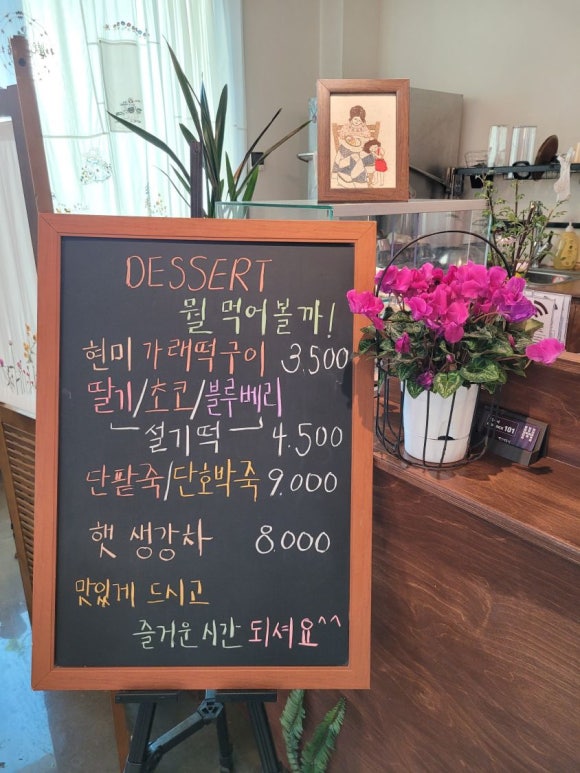 DESSERT
뭘 먹어볼까!
현미 가래떡구이 3,500
딸기/초코/블루베리
설기떡 4.500
단팥죽/단호박죽 9.000
햇 생강차 8.000
맛있게 드시고
즐거운 시간 되셔요^^
101